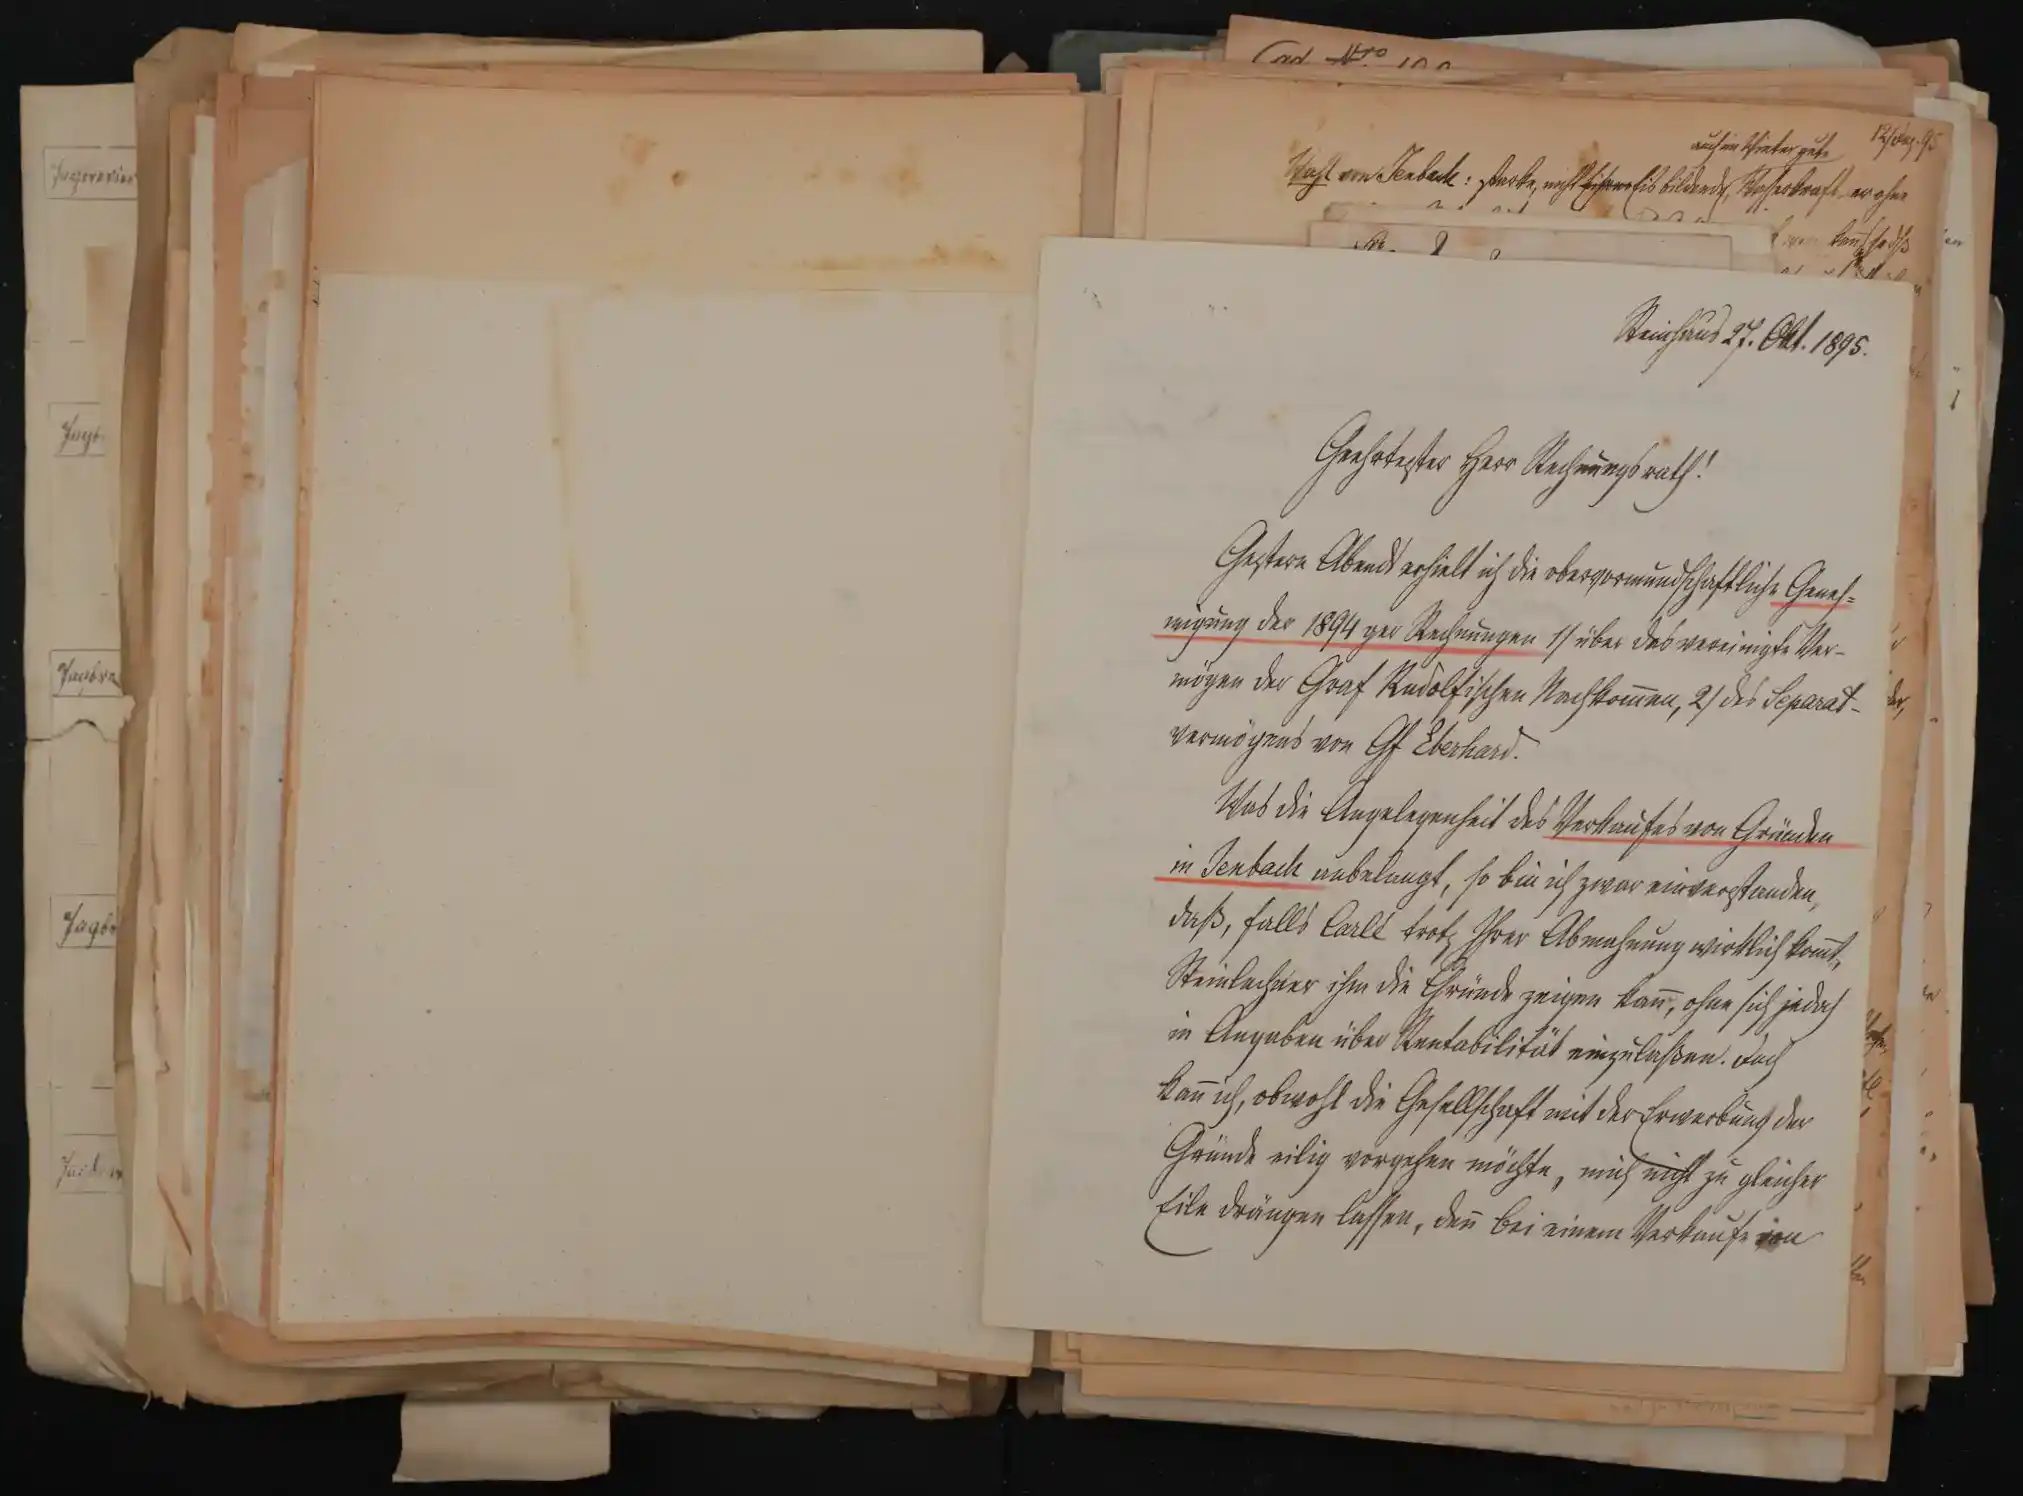 Jagdrevier
Jagd
12/Dez. 95
auch im Winter gute
Wahl von Jenbach: starke, nicht Eis bildende, Wasserkraft, er ohne
Steinhaus 27. Okt. 1895.
Geehrtester Herr Rechnungsrath!
Gestern Abends erhielt ich die obervormundschaftliche Geneh=
migung der 1894ger Rechnungen 1/ über das vereinigte Ver-
mögen der Graf Rudolfischen Nachkom̅en, 2/ des Separat-
vermögens von Gf Eberhard.
Was die Angelegenheit des Verkaufes von Gründen
in Jenbach anbelangt, so bin ich zwar einverstanden,
daß, falls Carli trotz Ihrer Abmahnung wirklich kom̅t,
Steinlechner ihm die Gründe zeigen kan̅, ohne sich jedoch
in Angaben über Rentabilität einzulaßen. Doch
kan̅ ich, obwohl die Gesellschaft mit der Erwerbung der
Gründe eilig vorgehen möchte, mich nicht zu gleicher
Eile drängen lassen, den̅ bei einem Verkaufe von